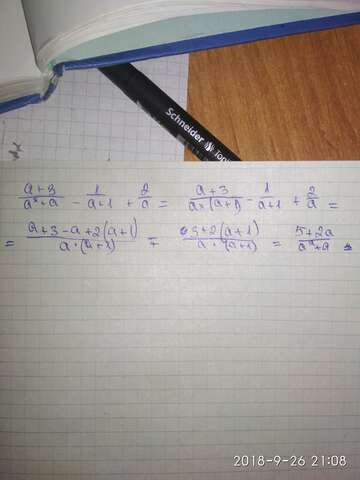 Schneider
(a+3)/(a²+a) - 1/(a+1) + 2/a = (a+3)/(a·(a+1)) - 1/(a+1) + 2/a =
= (a+3-a+2(a+1))/(a·(a+1)) = (3+2(a+1))/(a·(a+1)) = (5+2a)/(a²+a)
2018-9-26 21:08